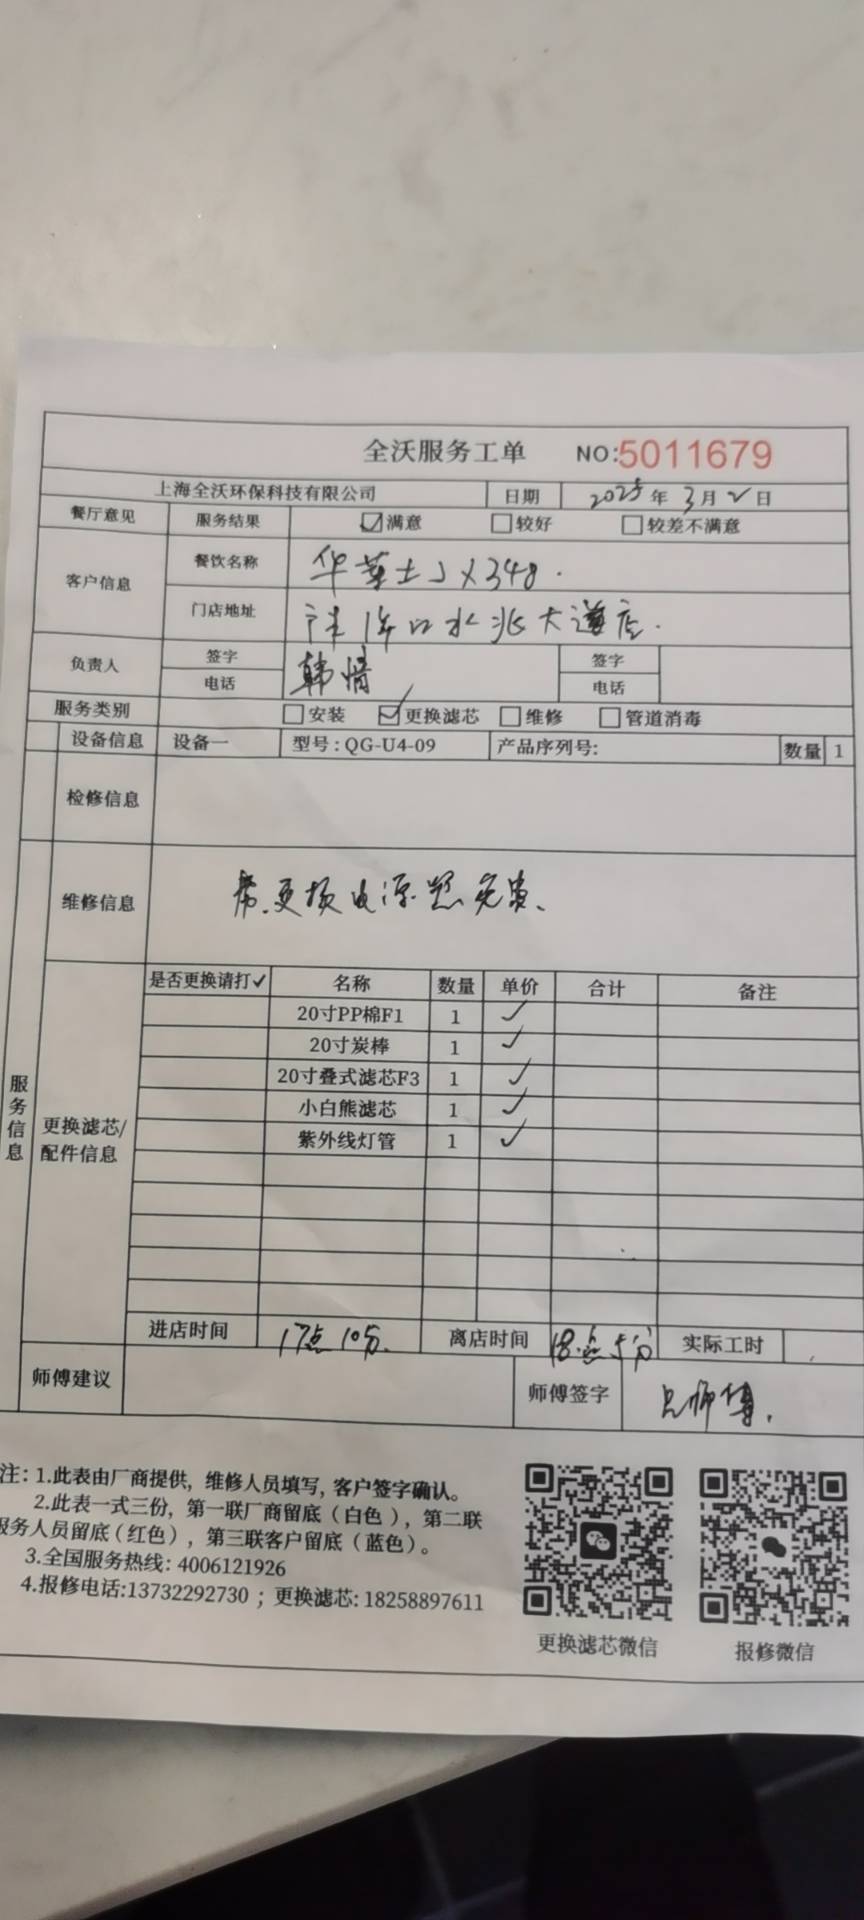 全沃服务工单 NO:5011679
上海全沃环保科技有限公司 日期 2025年3月2日
餐厅意见 服务结果 ☑满意 □较好 □较差不满意
客户信息 餐饮名称 华莱士JX348.
门店地址 水兆大道店.
负责人 签字 韩情 签字
电话 电话
服务类别 □安装 ☑更换滤芯 □维修 □管道消毒
设备信息 设备一 型号:QG-U4-09 产品序列号: 数量 1
检修信息
维修信息 更换电源 免费、
服务信息
更换滤芯/配件信息
是否更换请打✓ 名称 数量 单价 合计 备注
20寸PP棉F1 1 ✓
20寸炭棒 1 ✓
20寸叠式滤芯F3 1 ✓
小白熊滤芯 1 ✓
紫外线灯管 1 ✓
进店时间 17点10分. 离店时间 18点5分 实际工时
师傅建议 师傅签字 吕师傅.
注:1.此表由厂商提供,维修人员填写,客户签字确认。
2.此表一式三份,第一联厂商留底(白色),第二联
服务人员留底(红色),第三联客户留底(蓝色)。
3.全国服务热线:4006121926
4.报修电话:13732292730;更换滤芯:18258897611
更换滤芯微信 报修微信